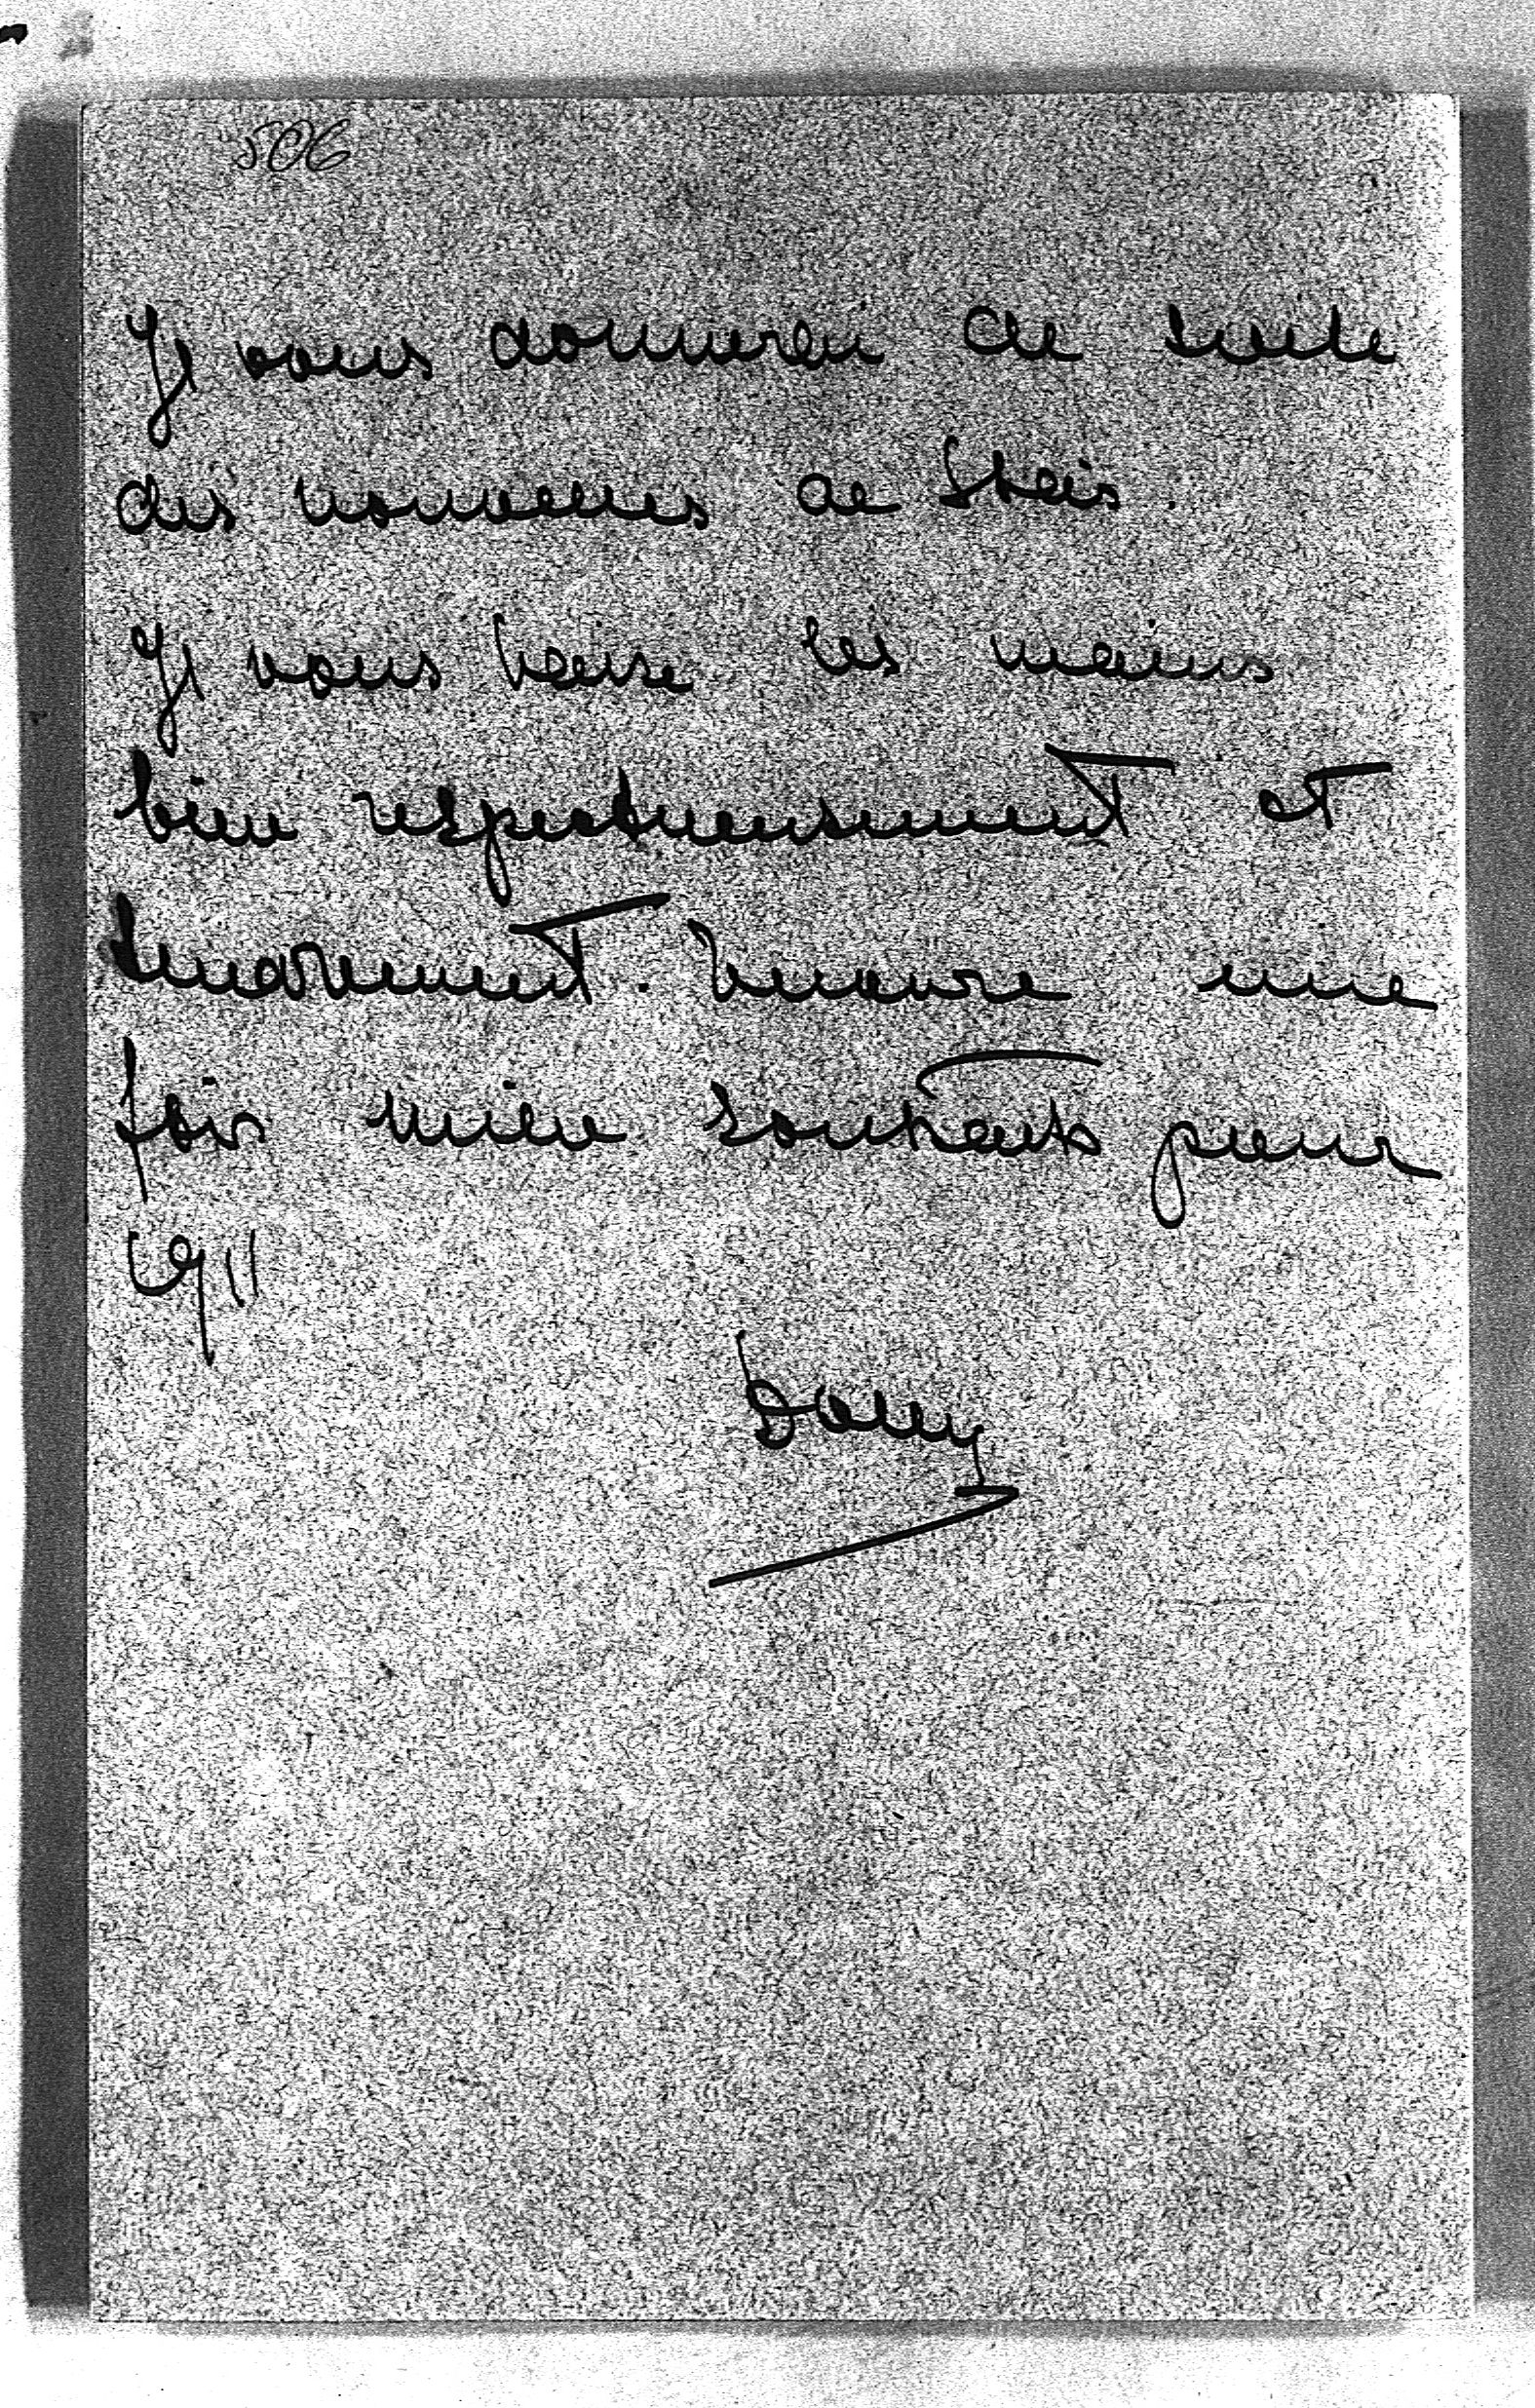 506
Je vous donnerai de suite
des nouvelles de Stris.
Je vous baise les mains
bien respectueusement et
tendrement. Encore une
fois mille souhaits pour
1911
Dolly